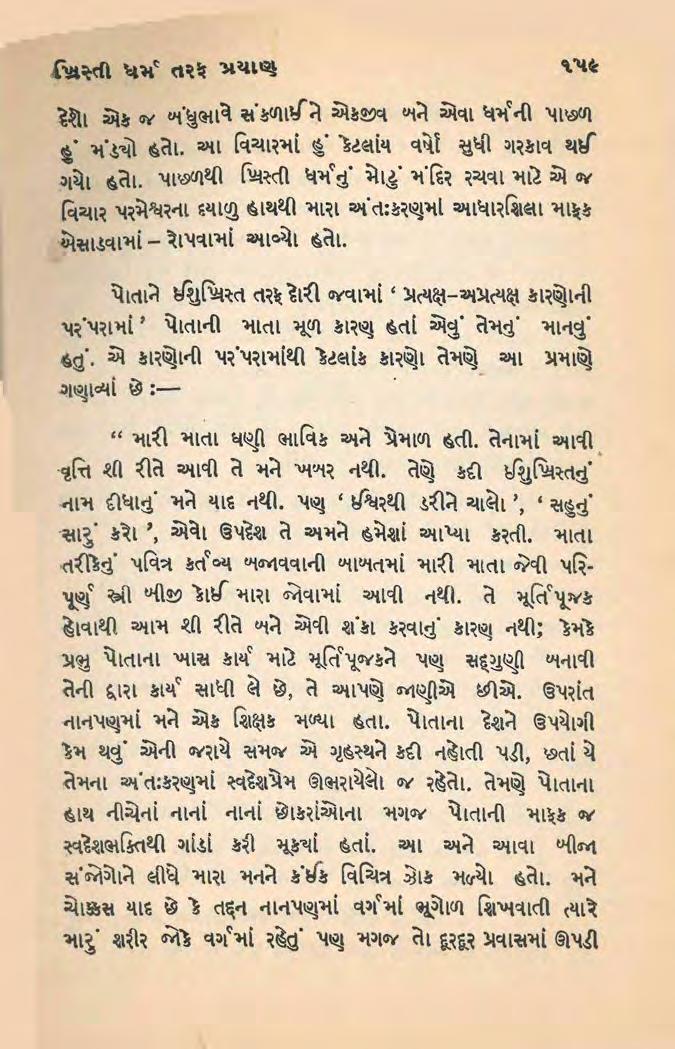 ખ્રિસ્તી ધર્મ તરફ પ્રયાણ ૧૫૯
દેશો એક જ બંધુભાવે સંકળાઈ ને એકજીવ બને એવા ધર્મની પાછળ
હું મંડ્યો હતો. આ વિચારમાં હું કેટલાંય વર્ષો સુધી ગરકાવ થઈ
ગયો હતો. પાછળથી ખ્રિસ્તી ધર્મનું મોટું મંદિર રચવા માટે એ જ
વિચાર પરમેશ્વરના દયાળુ હાથથી મારા અંતઃકરણમાં આધારશિલા માફક
બેસાડવામાં – રોપવામાં આવ્યો હતો.
પોતાને ઈશુખ્રિસ્ત તરફ દોરી જવામાં ‘ પ્રત્યક્ષ–અપ્રત્યક્ષ કારણોની
પરંપરામાં ’ પોતાની માતા મૂળ કારણ હતાં એવું તેમનું માનવું
હતું. એ કારણોની પરંપરામાંથી કેટલાંક કારણો તેમણે આ પ્રમાણે
ગણાવ્યાં છે :—
“ મારી માતા ઘણી ભાવિક અને પ્રેમાળ હતી. તેનામાં આવી
વૃત્તિ શી રીતે આવી તે મને ખબર નથી. તેણે કદી ઈશુખ્રિસ્તનું
નામ દીધાનું મને યાદ નથી. પણ ‘ ઈશ્વરથી ડરીને ચાલો ’, ‘ સહુનું
સારું કરો ’, એવો ઉપદેશ તે અમને હમેશાં આપ્યા કરતી. માતા
તરીકેનું પવિત્ર કર્તવ્ય બજાવવાની બાબતમાં મારી માતા જેવી પરિ-
પૂર્ણ સ્ત્રી બીજી કોઈ મારા જોવામાં આવી નથી. તે મૂર્તિપૂજક
હોવાથી આમ શી રીતે બને એવી શંકા કરવાનું કારણ નથી; કેમકે
પ્રભુ પોતાના ખાસ કાર્ય માટે મૂર્તિપૂજકને પણ સદ્ગુણી બનાવી
તેની દ્વારા કાર્ય સાધી લે છે, તે આપણે જાણીએ છીએ. ઉપરાંત
નાનપણમાં મને એક શિક્ષક મળ્યા હતા. પોતાના દેશને ઉપયોગી
કેમ થવું એની જરાયે સમજ એ ગૃહસ્થને કદી નહોતી પડી, છતાં યે
તેમના અંતઃકરણમાં સ્વદેશપ્રેમ ઊભરાયેલો જ રહેતો. તેમણે પોતાના
હાથ નીચેનાં નાનાં નાનાં છોકરાંઓના મગજ પોતાની માફક જ
સ્વદેશભક્તિથી ગાંડાં કરી મૂકયાં હતાં. આ અને આવા બીજા
સંજોગોને લીધે મારા મનને કંઈક વિચિત્ર ઝોક મળ્યો હતો. મને
ચોક્કસ યાદ છે કે તદ્દન નાનપણમાં વર્ગમાં ભૂગોળ શિખવાતી ત્યારે
મારું શરીર જોકે વર્ગમાં રહેતું પણ મગજ તો દૂરદૂર પ્રવાસમાં ઊપડી